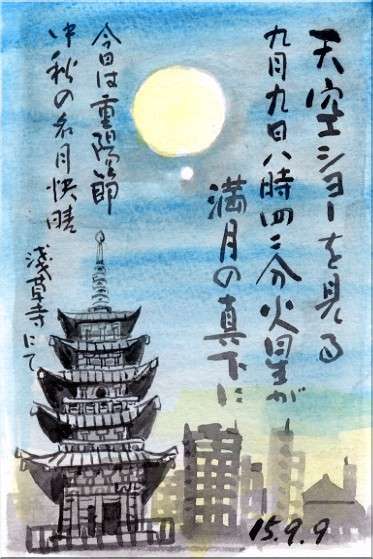 天空ショーを見る
九月九日八時四三分火星が
満月の真下に
今日は重陽節
中秋の名月快晴
浅草寺にて
15.9.9